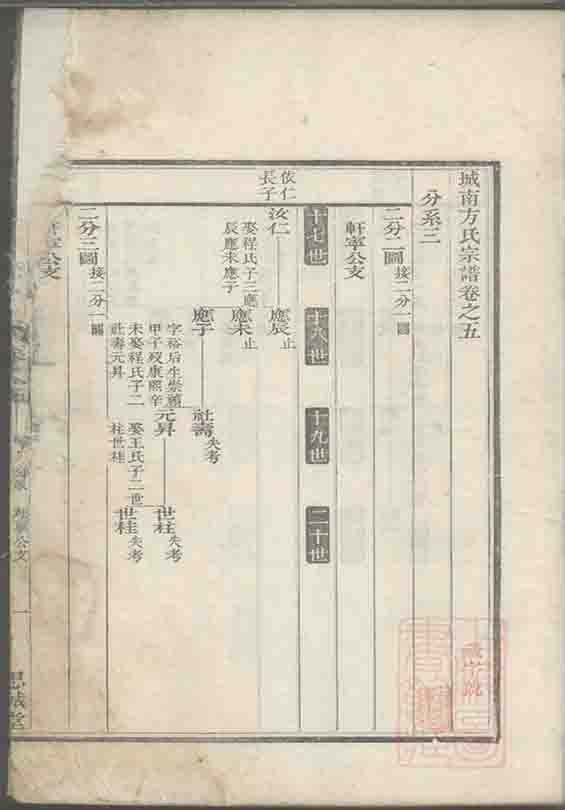 城南方氏宗譜卷之五
分系三
二分二圖接二分一圖
軒寧公支
十七世
十八世
十九世
二十世
依仁長子
汝仁
娶程氏子三應
辰應未應子
應辰止
應未止
應子
字裕后生崇禎
甲子歿康熙辛
未娶程氏子二
社壽元昇
社壽失考
元昇
娶王氏子二世
柱世桂
世柱失考
世桂失考
二分三圖接二分一圖
軒寧公支
軒寧公支
一
思誠堂